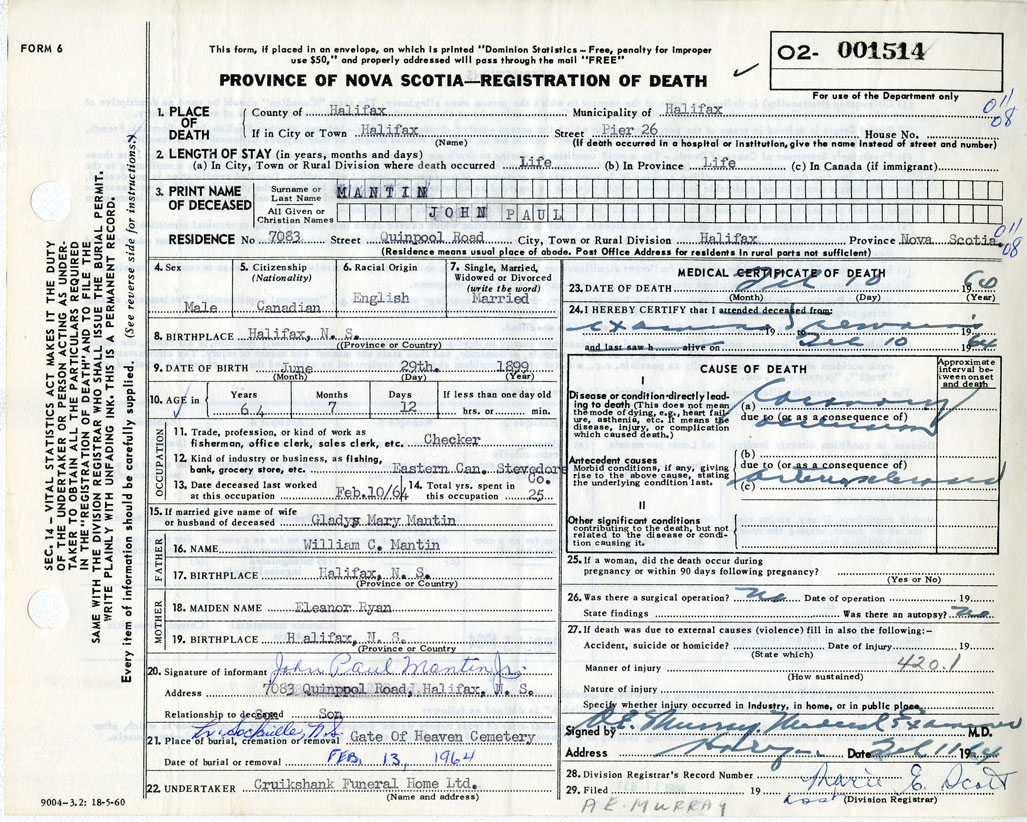 FORM 6
This form, if placed in an envelope, on which is printed "Dominion Statistics – Free, penalty for improper
use $50," and properly addressed will pass through the mail "FREE"
PROVINCE OF NOVA SCOTIA—REGISTRATION OF DEATH
02- 001514
For use of the Department only
011
08
SEC. 14 – VITAL STATISTICS ACT MAKES IT THE DUTY
OF THE UNDERTAKER OR PERSON ACTING AS UNDER-
TAKER TO OBTAIN ALL THE PARTICULARS REQUIRED
IN THE "REGISTRATION OF DEATH" AND TO FILE THE
SAME WITH THE DIVISION REGISTRAR WHO SHALL ISSUE THE BURIAL PERMIT.
WRITE PLAINLY WITH UNFADING INK. THIS IS A PERMANENT RECORD.
Every item of information should be carefully supplied. (See reverse side for instructions.)
1. PLACE OF DEATH
County of Halifax Municipality of Halifax
If in City or Town Halifax Street Pier 26 House No.
(Name) (If death occurred in a hospital or institution, give the name instead of street and number)
2. LENGTH OF STAY (in years, months and days)
(a) In City, Town or Rural Division where death occurred Life (b) In Province Life (c) In Canada (if immigrant)
3. PRINT NAME OF DECEASED
Surname or Last Name MANTIN
All Given or Christian Names JOHN PAUL
RESIDENCE No 7083 Street Quinpool Road City, Town or Rural Division Halifax Province Nova Scotia.
011
08
(Residence means usual place of abode. Post Office Address for residents in rural parts not sufficient)
4. Sex
Male
5. Citizenship
(Nationality)
Canadian
6. Racial Origin
English
7. Single, Married,
Widowed or Divorced
(write the word)
Married
8. BIRTHPLACE Halifax, N. S.
(Province or Country)
9. DATE OF BIRTH June 29th. 1899
(Month) (Day) (Year)
10. AGE in
Years Months Days If less than one day old
64 7 12 hrs. or min.
OCCUPATION
11. Trade, profession, or kind of work as
fisherman, office clerk, sales clerk, etc. Checker
12. Kind of industry or business, as fishing,
bank, grocery store, etc. Eastern Can. Stevedore
Co.
13. Date deceased last worked
at this occupation Feb.10/64
14. Total yrs. spent in
this occupation 25
15. If married give name of wife
or husband of deceased Gladys Mary Mantin
FATHER
16. NAME William C. Mantin
17. BIRTHPLACE Halifax, N. S.
(Province or Country)
MOTHER
18. MAIDEN NAME Eleanor Ryan
19. BIRTHPLACE Halifax, N. S.
(Province or Country
20. Signature of informant John Paul Mantin Jr.
Address 7083 Quinppol Road, Halifax, N. S.
Relationship to deceased Son Son
Lr. Sackville, N.S.
21. Place of burial, cremation or removal Gate Of Heaven Cemetery
Date of burial or removal FEB. 13, 1964
22. UNDERTAKER Cruikshank Funeral Home Ltd.
(Name and address)
9004-3.2: 18-5-60
MEDICAL CERTIFICATE OF DEATH
23. DATE OF DEATH Feb 10 1964
(Month) (Day) (Year)
24. I HEREBY CERTIFY that I attended deceased from:
examined remains
19 to 19
and last saw h alive on Feb 10 1964
CAUSE OF DEATH
Approximate
interval be-
tween onset
and death
I
Disease or condition directly lead-
ing to death (This does not mean
the mode of dying, e.g., heart fail-
ure, asthenia, etc. It means the
disease, injury, or complication
which caused death.)
(a) Coronary
due to (or as a consequence of)
occlusion
Antecedent causes
Morbid conditions, if any, giving
rise to the above cause, stating
the underlying condition last.
(b)
due to (or as a consequence of)
(c) Arteriosclerosis
II
Other significant conditions
contributing to the death, but not
related to the disease or condi-
tion causing it.
25. If a woman, did the death occur during
pregnancy or within 90 days following pregnancy?
(Yes or No)
26. Was there a surgical operation? No Date of operation 19
State findings Was there an autopsy? No
27. If death was due to external causes (violence) fill in also the following:–
Accident, suicide or homicide? Date of injury 19
(State which)
Manner of injury 420.1
(How sustained)
Nature of injury
Specify whether injury occurred in industry, in home, or in public place
Signed by A.E. Murray Medical Examiner M.D.
Address Halifax Date Feb 11 1964
28. Division Registrar's Record Number
29. Filed 19 Marie E. Scott
(Division Registrar)
A.E. MURRAY